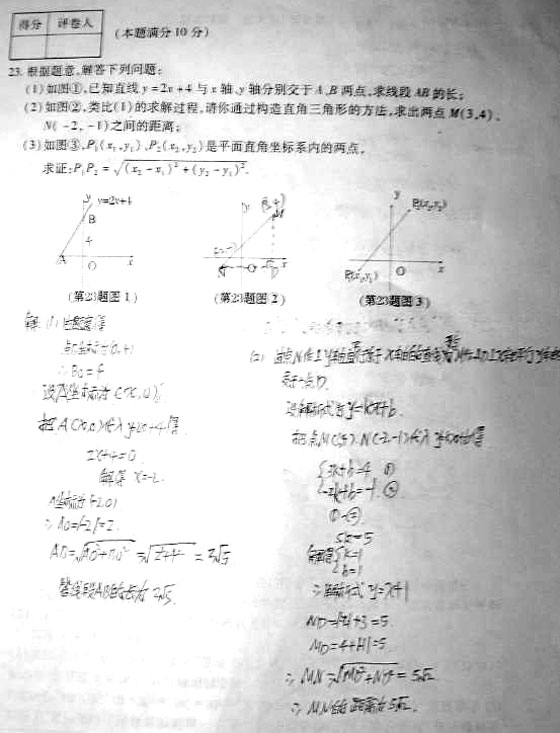 得分 评卷人
(本题满分10分)
23. 根据题意,解答下列问题:
(1)如图①,已知直线 y=2x+4 与 x 轴、y 轴分别交于 A、B 两点,求线段 AB 的长;
(2)如图②,类比(1)的求解过程,请你通过构造直角三角形的方法,求出两点 M(3,4)、
N(-2,-1)之间的距离;
(3)如图③,P₁(x₁,y₁)、P₂(x₂,y₂)是平面直角坐标系内的两点,
求证:P₁P₂=√((x₂-x₁)²+(y₂-y₁)²).
y y=2x+4
B
4
A O x
y
M
N O D x
y P₂(x₂,y₂)
O x
P₁(x₁,y₁)
(第23题图1) (第23题图2) (第23题图3)
解:(1)由题意得
点B坐标为(0,4)
∴BO=4
设A坐标为(x,0)
把A(x,0)代入y=2x+4得
2x+4=0
解得 x=-2
A坐标为(-2,0)
∴AO=|-2|=2
AB=√(AO²+BO²)=√(2²+4²)=2√5
答线段AB的长为2√5.
(2)
设解析式为y=kx+b.
把点M(3,4).N(-2,-1)代入y=kx+b得
{3k+b=4 ①
-2k+b=-1 ②
①-②
5k=5
解得{k=1
b=1
∴解析式y=x+1
ND=|-2|+3=5.
MD=4+|-1|=5.
∴MN=√(MD²+ND²)=5√2.
∴MN的距离为5√2.